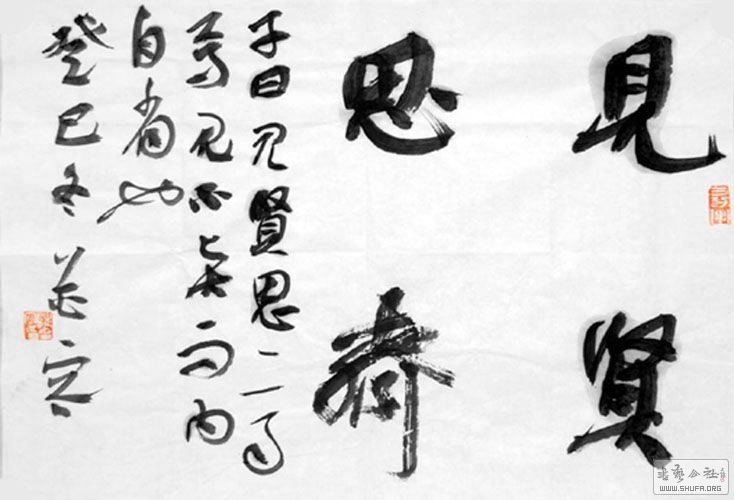 見賢
思齊
子曰見賢思齊
焉見不賢而内
自省也
癸巳冬
书艺公社
WWW.SHUFA.ORG